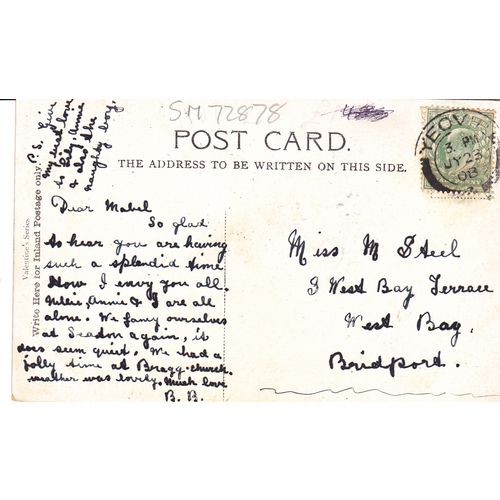 SM 72878
POST CARD.
THE ADDRESS TO BE WRITTEN ON THIS SIDE.
Valentine's Series
Write Here for Inland Postage only.
P.S. Give
my best love
to Lily, Annie
& also the
naughty boy.
Dear Mabel
So glad
to hear you are having
such a splendid time
How I envy you all.
Nellie, Annie & I are all
alone. We fancy ourselves
at Seaton again, it
does seem quiet. We had a
jolly time at Bragg-church.
weather was lovely. Much love
B. B.
YEOVIL
3. PM
JY 23
08
Miss M Steel
3 West Bay Terrace
West Bay,
Bridport.